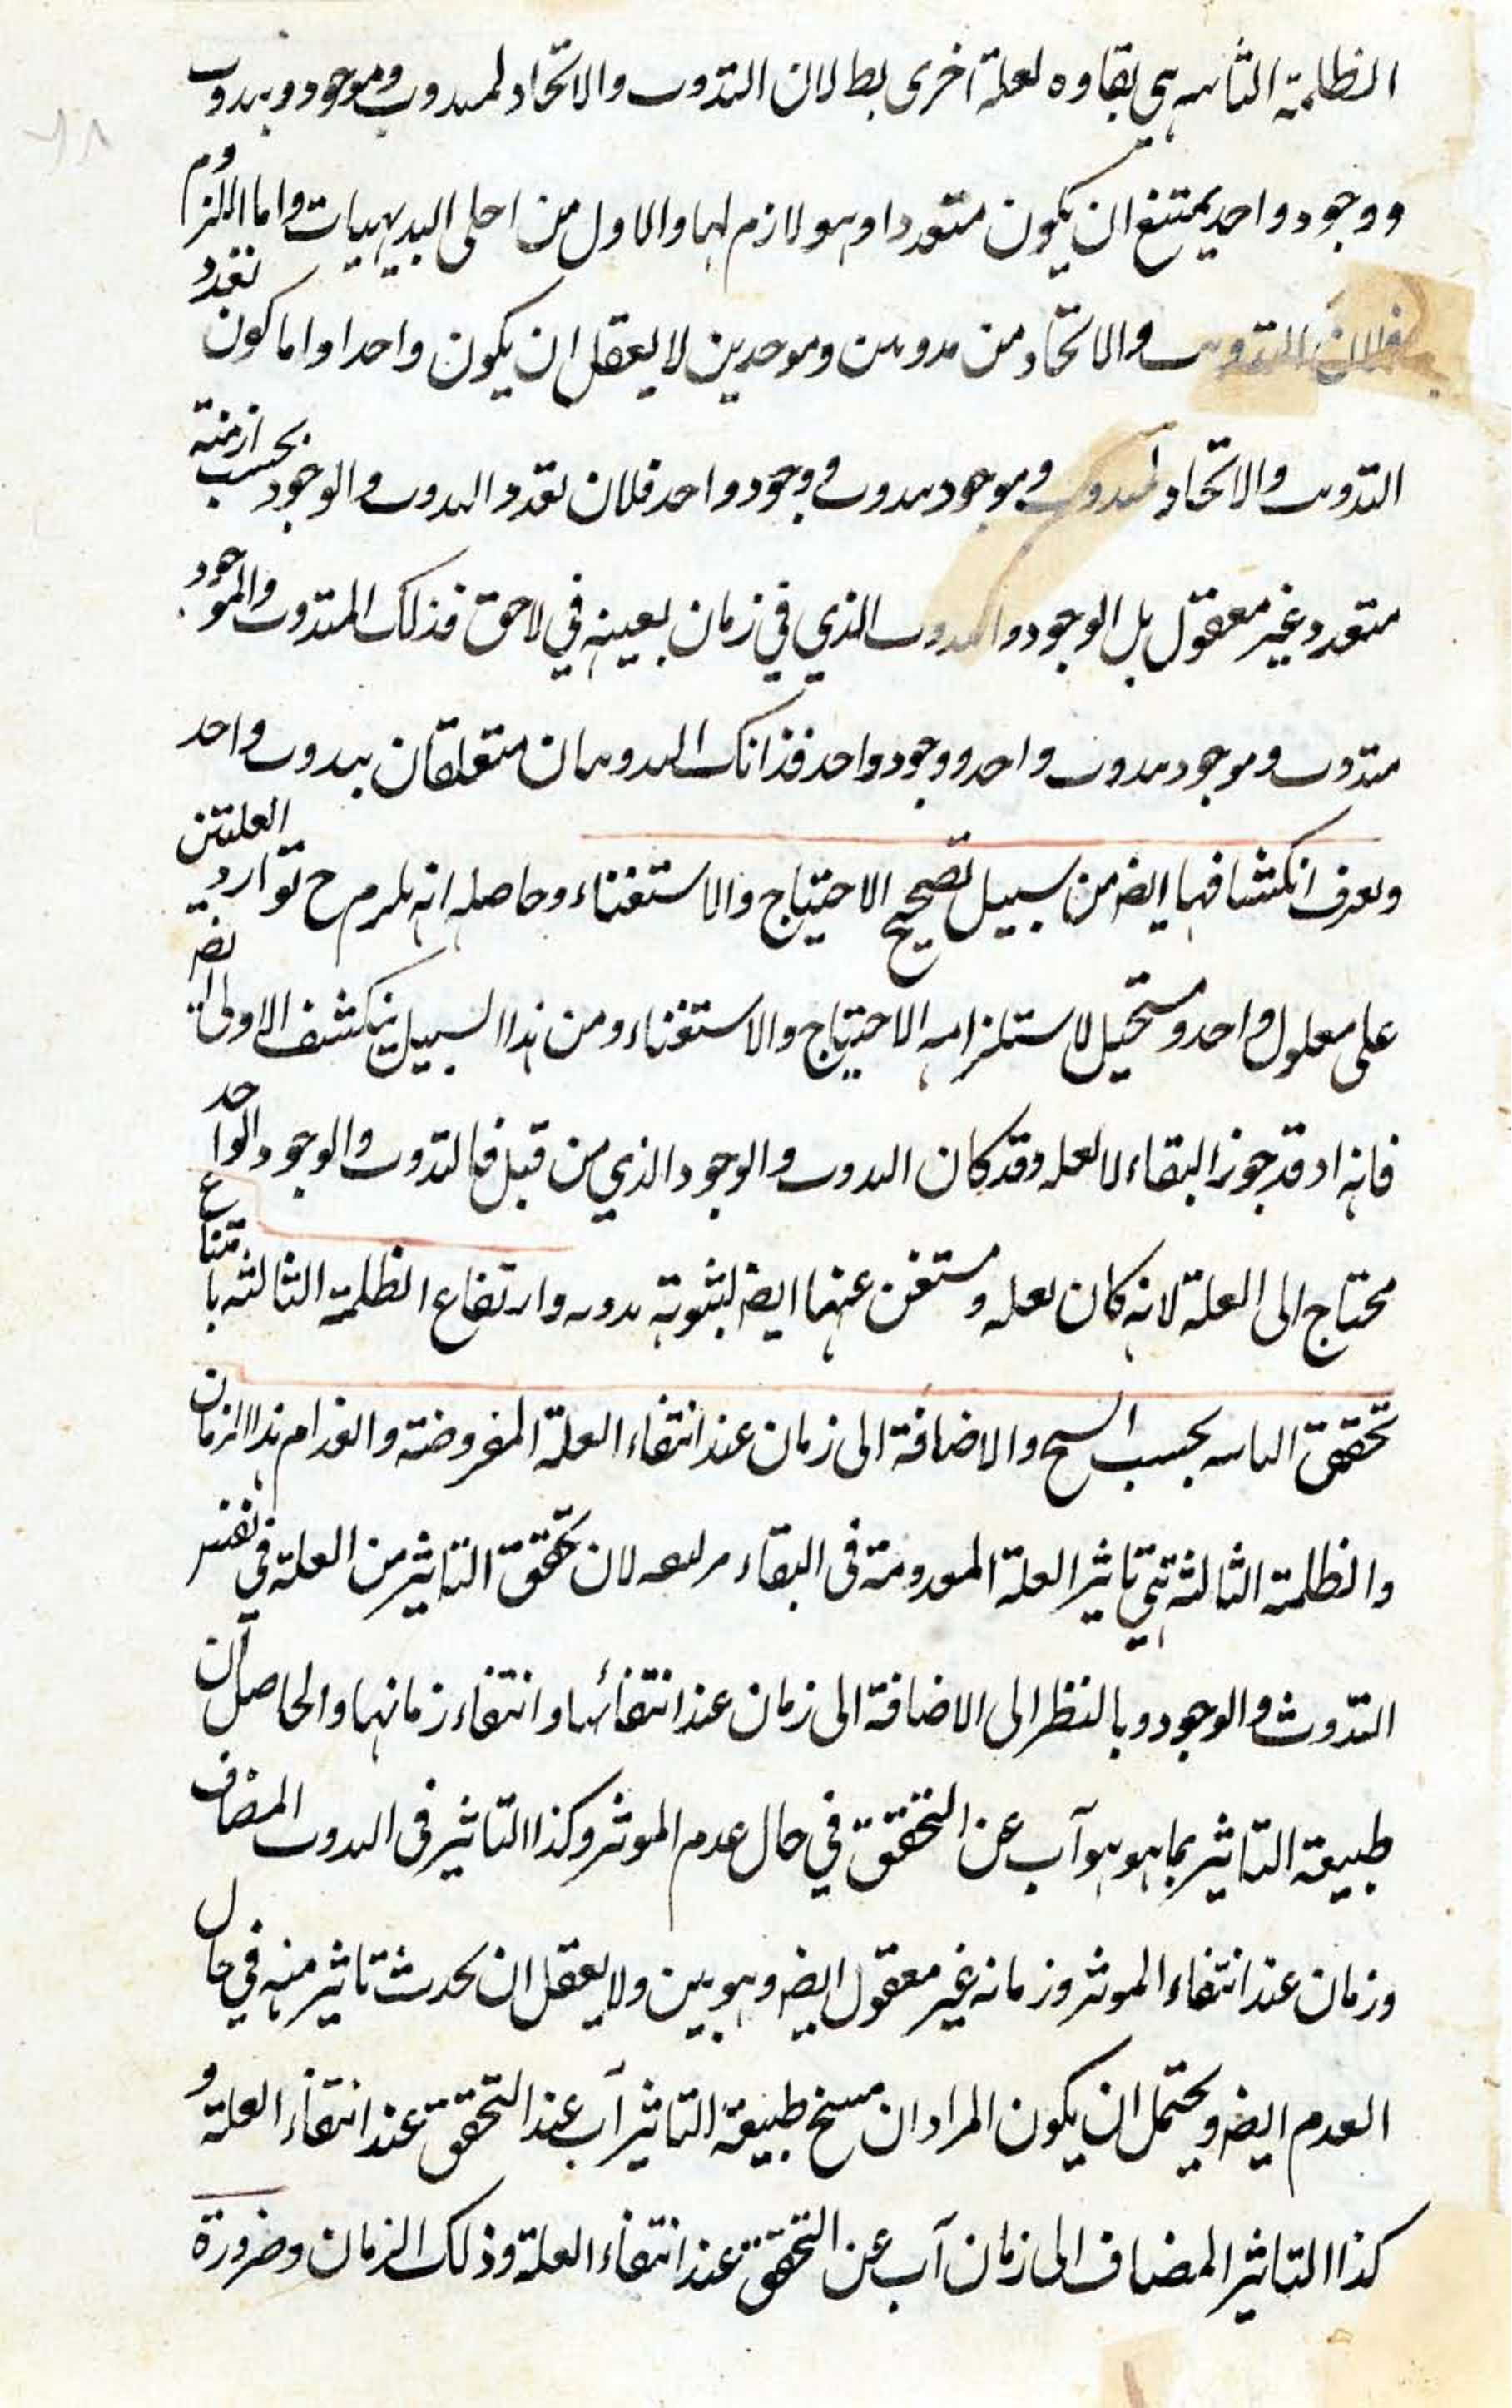 الظلمة الثانيه هي بقاوه لعلة اخرى بطلان التذوت والاتحاد لمتذوت وموجود وبذوت
ووجود واحد يمتنع ان يكون متعددا وهو لازم لهما والاول من اجلى البديهيات واما اللزوم
فلان التذوت والاتحاد من مذوتين وموجدين لا يعقل ان يكون واحدا واما كون تعدد
التذوت والاتحاد لمتذوت وموجود بذوت ووجود واحد فلان تعدد الذوت والوجود بحسب ازمنة
متعدد غير معقول بل الوجود والذوت الذي في زمان بعينه في لاحق فذلك المتذوت والموجود
متذوت وموجود بذوت واحد ووجود واحد فذانك التذوتان متعلقان بذوت واحد
ويعرف انكشافها ايضه من سبيل تصحيح الاحتياج والاستغناء وحاصله انه يلزم ح توارد العلتين
على معلول واحد ومستحيل لاستلزامه الاحتياج والاستغناء ومن هذا السبيل ينكشف الاولى ايضه
فانه اذ قد جوز البقاء لا لعله وقد كان الذوت والوجود الذي من قبل فالتذوت والوجود الواحد
محتاج الى العلة لانه كان لعله ومستغن عنها ايضه لثبوته بدونه وارتفاع الظلمة الثالثه بامتناع
تحقق التاثير بحسب السنخ والاضافة الى زمان عند انتفاء العلة المفروضة وانعدام هذا الزمان
والظلمة الثالثة هي تاثير العلة المعدومة فى البقاء مرتفعه لان تحقق التاثير من العلة في نفس
التذوت والوجود وبالنظر الى الاضافة الى زمان عند انتفائها وانتفاء زمانها والحاصل ان
طبيعة التاثير بما هو هو آب عن التحقق في حال عدم الموثر وكذا التاثير فى الذوت المضاف
وزمان عند انتفاء الموثر وزمانه غير معقول ايضه وهو بين ولا يعقل ان يحدث تاثير منه في حال
العدم ايضه ويحتمل ان يكون المراد ان سنخ طبيعة التاثير آب عند التحقق عند انتفاء العلة و
كذا التاثير المضاف الى زمان آب عن التحقق عند انتفاء العلة وذلك الزمان وضرورة